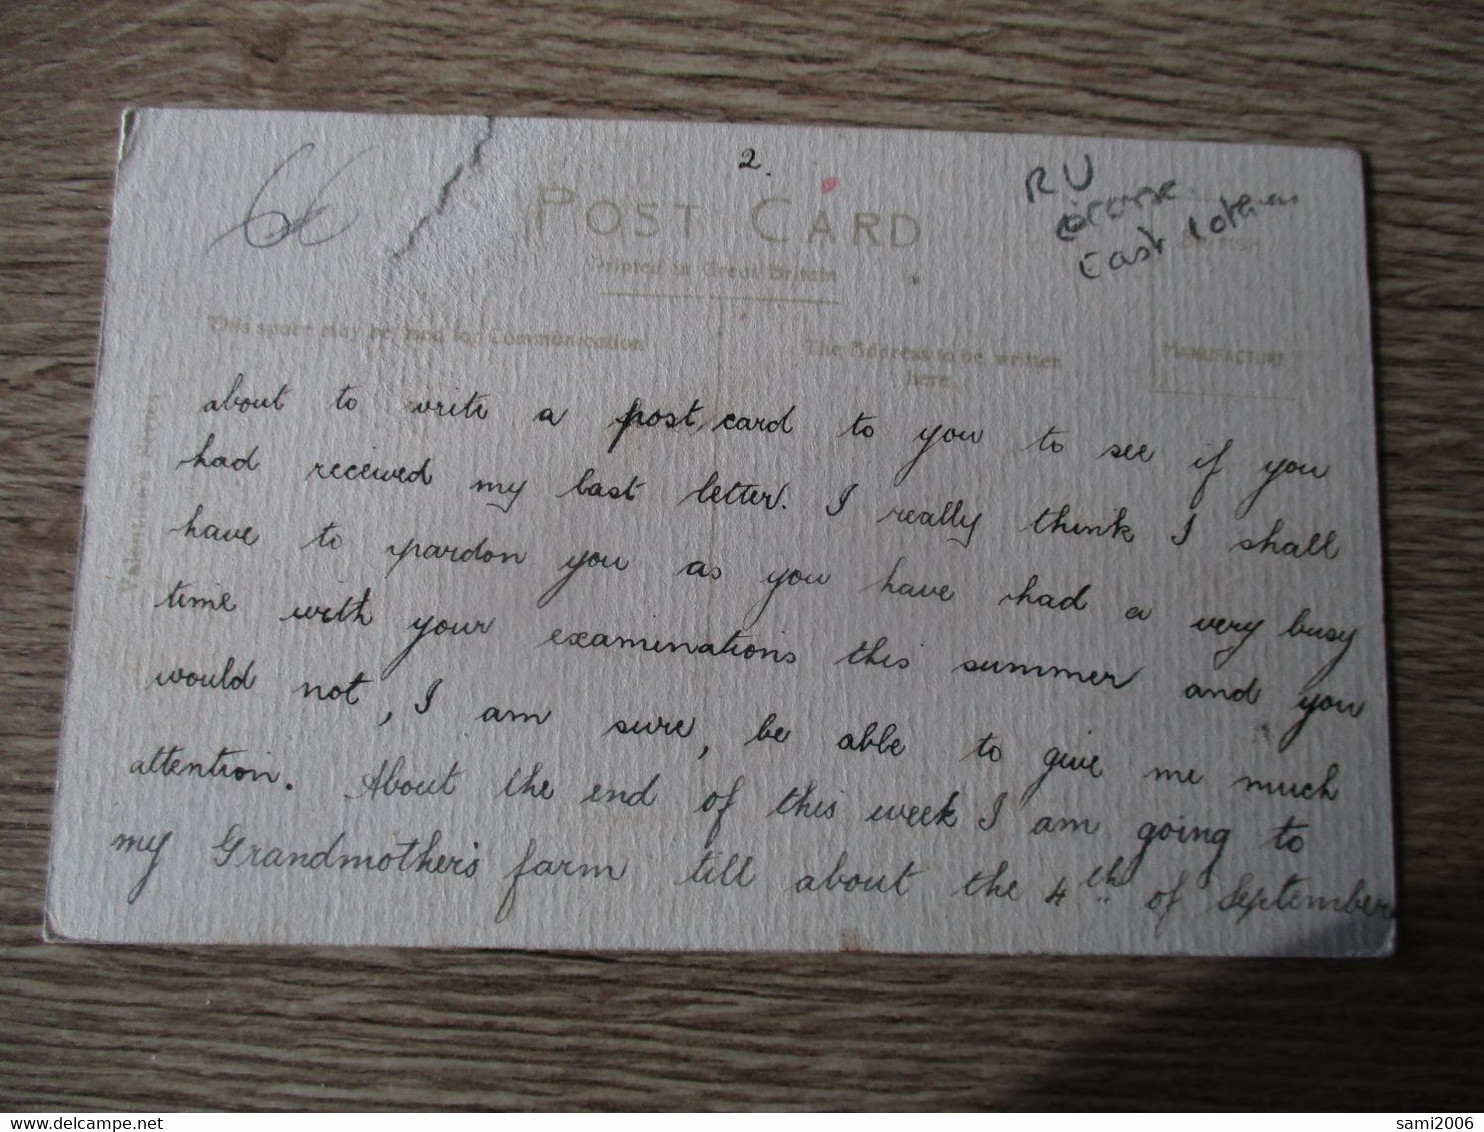 2.
RU
East Lothian
POST CARD
Printed in Great Britain
This space may be used for Communication
The Address to be written
here.
MANUFACTURE
Valentine's Series
about to write a post card to you to see if you
had received my last letter. I really think I shall
have to pardon you as you have had a very busy
time with your examinations this summer and you
would not, I am sure, be able to give me much
attention. About the end of this week I am going to
my Grandmother's farm till about the 4th of September
sami2006